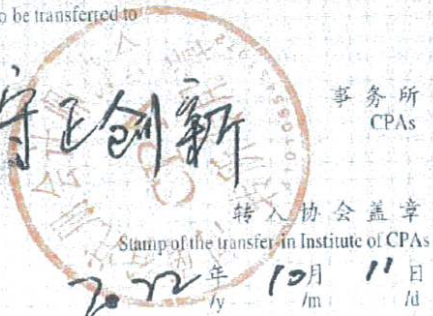 o be transferred to
守正创新
事务所
CPAs
转入协会盖章
Stamp of the transfer-in Institute of CPAs
2022年 10月 11日
/y /m /d